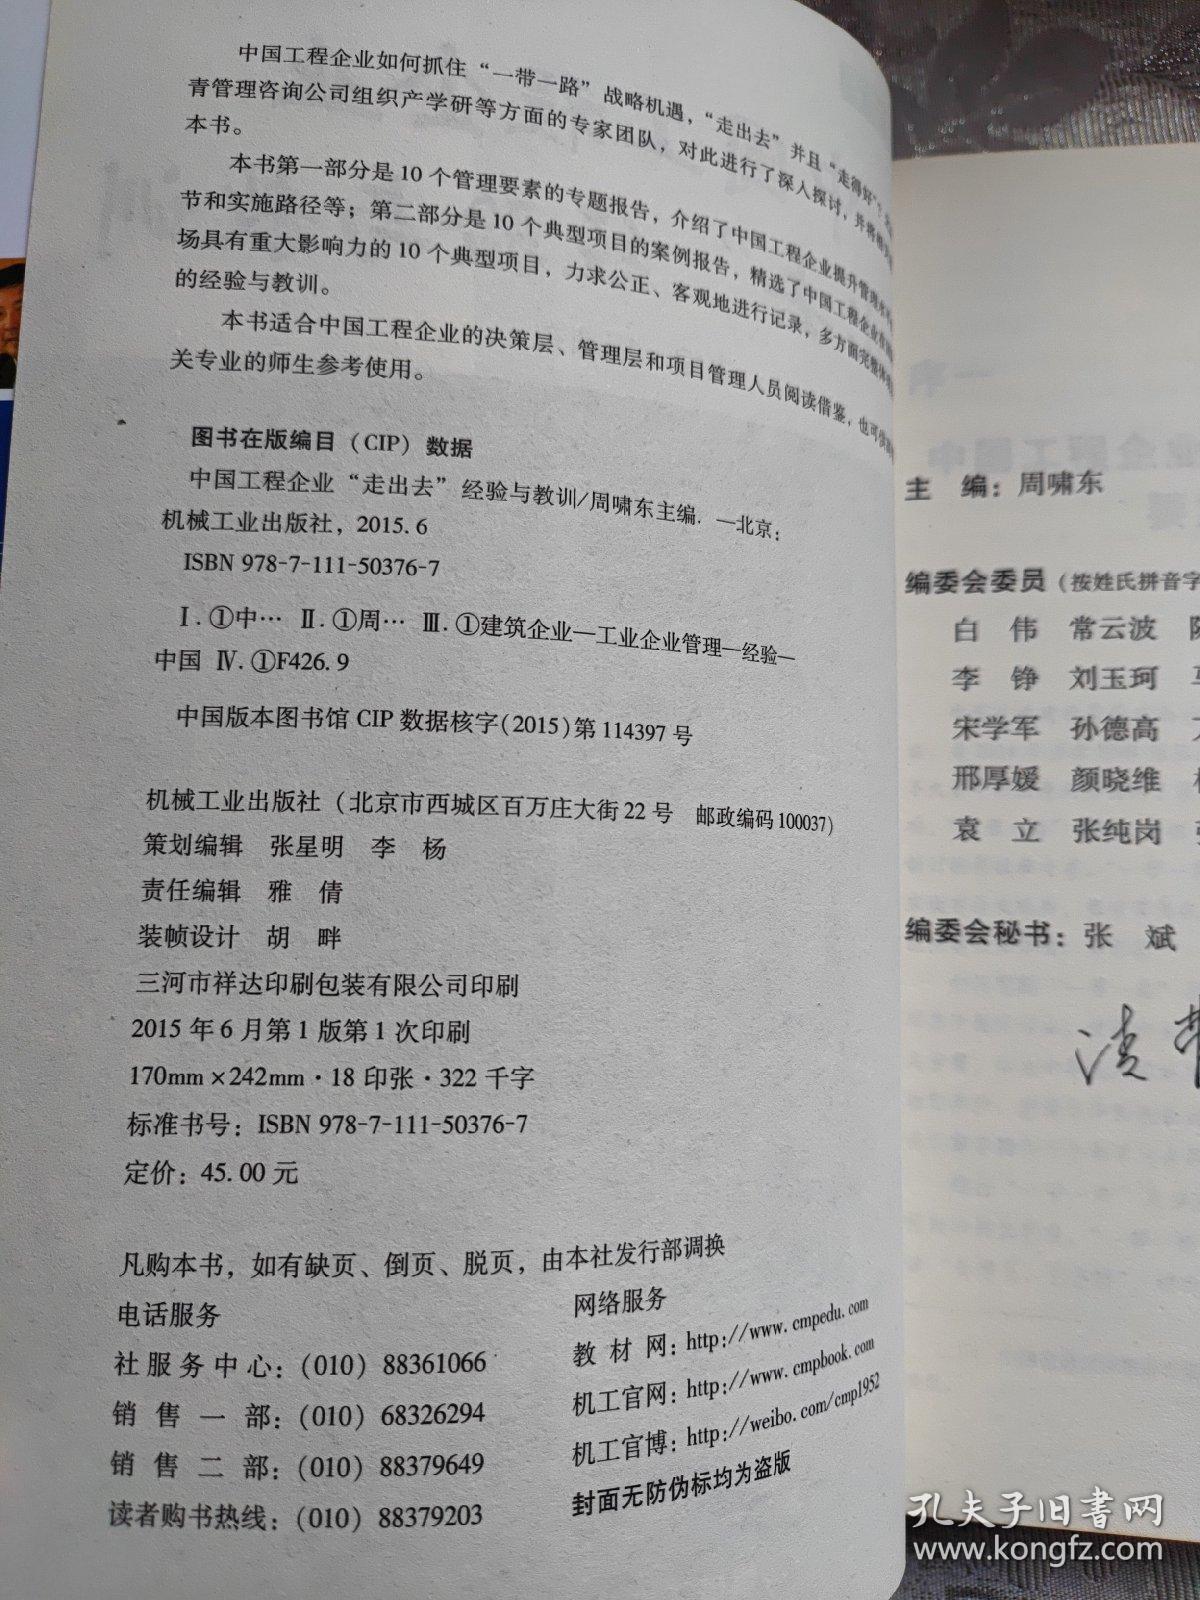 中国工程企业如何抓住“一带一路”战略机遇，“走出去”并且“走得好”？
青管理咨询公司组织产学研等方面的专家团队，对此进行了深入探讨，并将
本书。
本书第一部分是10个管理要素的专题报告，介绍了中国工程企业提升管理水
节和实施路径等；第二部分是10个典型项目的案例报告，精选了中国工程企业
场具有重大影响力的10个典型项目，力求公正、客观地进行记录，多方面完整
的经验与教训。
本书适合中国工程企业的决策层、管理层和项目管理人员阅读借鉴，也可供
关专业的师生参考使用。
图书在版编目（CIP）数据
中国工程企业“走出去”经验与教训/周啸东主编. —北京：
机械工业出版社，2015.6
ISBN 978-7-111-50376-7
Ⅰ.①中… Ⅱ.①周… Ⅲ.①建筑企业—工业企业管理—经验—
中国 Ⅳ.①F426.9
中国版本图书馆CIP数据核字(2015)第114397号
机械工业出版社（北京市西城区百万庄大街22号 邮政编码100037）
策划编辑 张星明 李 杨
责任编辑 雅 倩
装帧设计 胡 畔
三河市祥达印刷包装有限公司印刷
2015年6月第1版第1次印刷
170mm×242mm·18印张·322千字
标准书号：ISBN 978-7-111-50376-7
定价：45.00元
凡购本书，如有缺页、倒页、脱页，由本社发行部调换
电话服务 网络服务
社服务中心：(010) 88361066 教 材 网：http://www.cmpedu.com
销 售 一 部：(010) 68326294 机工官网：http://www.cmpbook.com
销 售 二 部：(010) 88379649 机工官博：http://weibo.com/cmp1952
读者购书热线：(010) 88379203 封面无防伪标均为盗版
主 编：周啸东
编委会委员（按姓氏拼音字
白 伟 常云波
李 铮 刘玉珂
宋学军 孙德高
邢厚媛 颜晓维
袁 立 张纯岗
编委会秘书：张 斌
孔夫子旧书网
www.kongfz.com